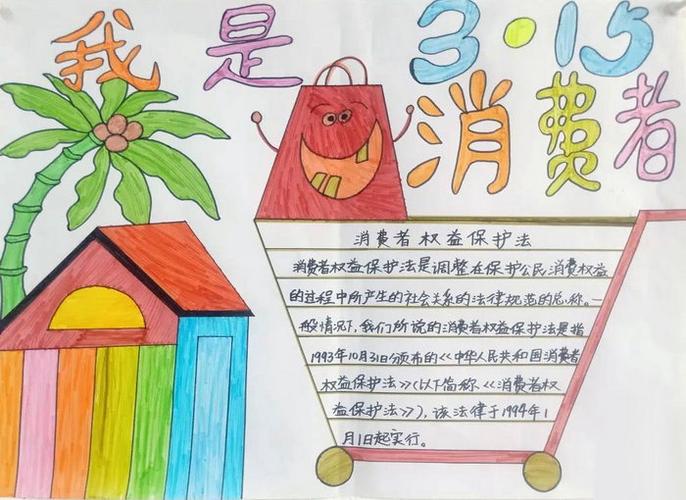 我是3·15
消费者
消费者权益保护法
消费者权益保护法是调整在保护公民消费权益
的过程中所产生的社会关系的法律规范的总称。一
般情况下,我们所说的消费者权益保护法是指
1993年10月31日颁布的《中华人民共和国消费者
权益保护法》(以下简称《消费者权
益保护法》),该法律于1994年1
月1日起实行。